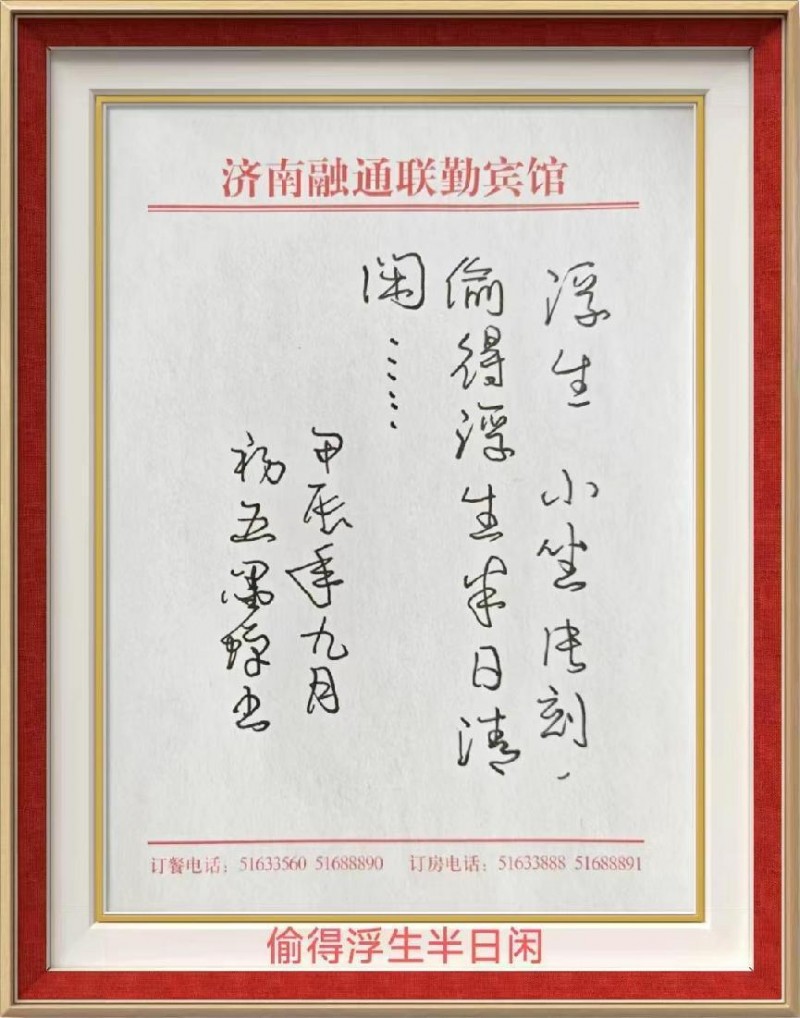 济南融通联勤宾馆
浮生 小坐片刻，
偷得浮生半日清
闲……
甲辰年九月
初五墨书
订餐电话：51633560 51688890 订房电话：51633888 51688891
偷得浮生半日闲